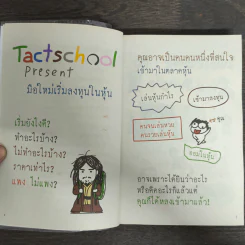 Tactschool
Present
มือใหม่เริ่มลงทุนในหุ้น
เริ่มยังไงดี?
ทำอะไรบ้าง?
ไม่ทำอะไรบ้าง?
ราคาเท่าไร?
แพง ไม่แพง?
คุณอาจเป็นคนคนหนึ่งที่สนใจ
เข้ามาในตลาดหุ้น
เล่นหุ้นกำไร
เข้ามาลงทุน
อาจเพราะได้ยินว่าอะไร
หรือคิดอะไรก็แล้วแต่
คุณก็ได้หลงเข้ามาแล้ว!